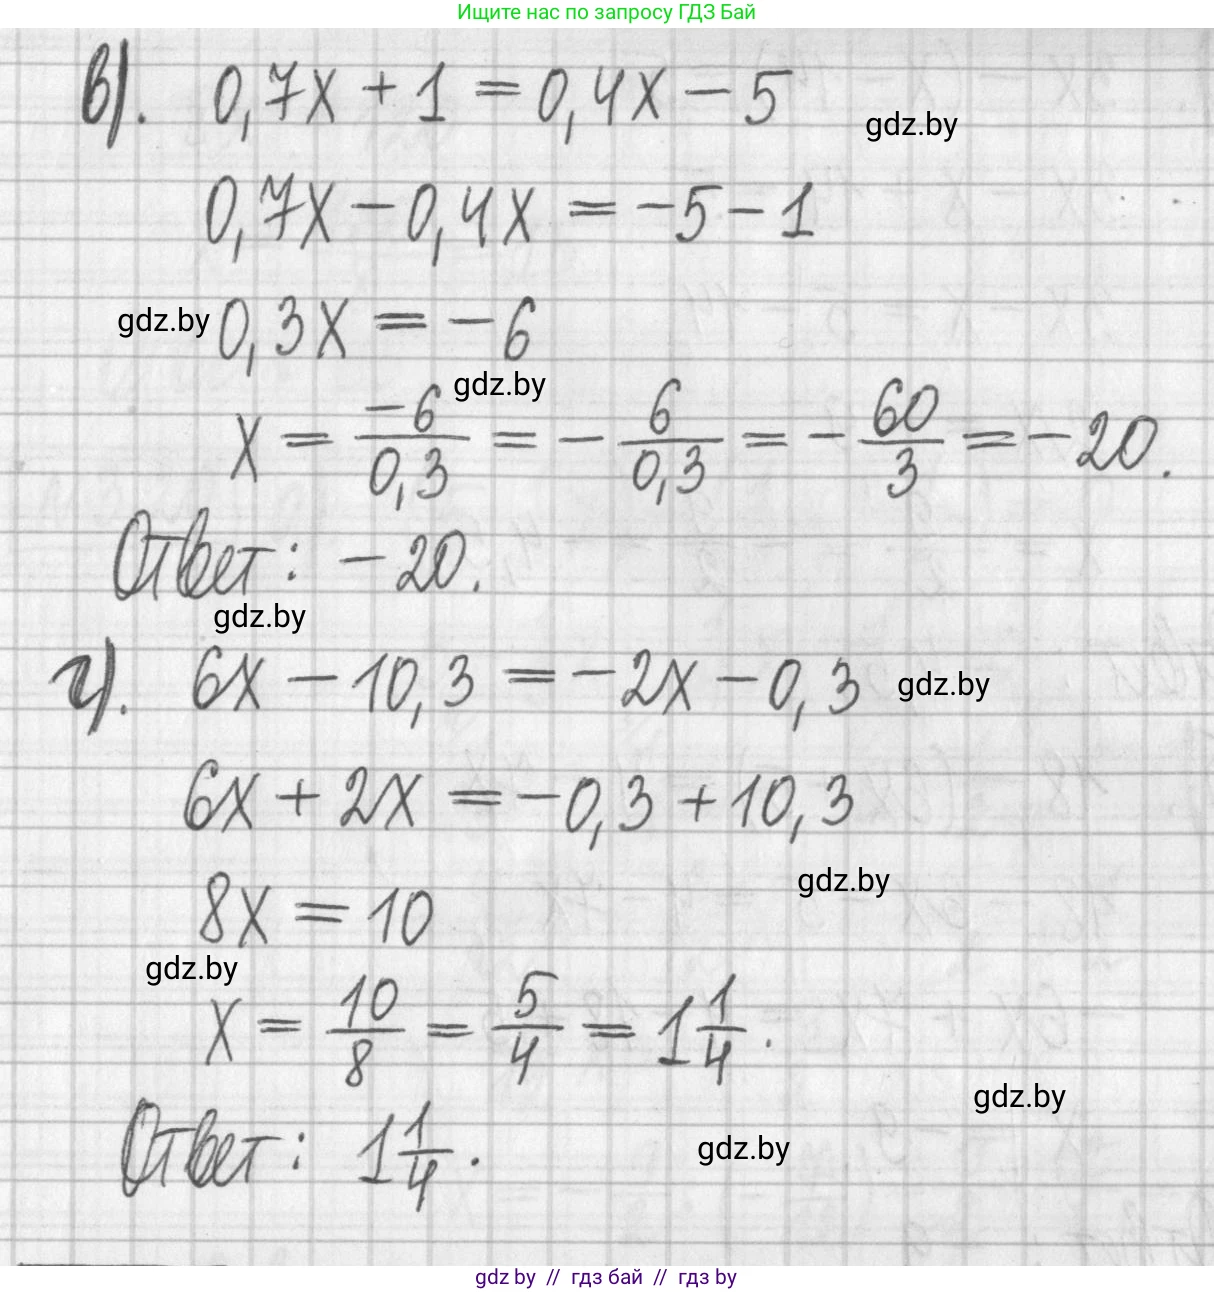 Ищите нас по запросу ГДЗ Бай
в). 0,7x + 1 = 0,4x - 5
gdz.by
0,7x - 0,4x = -5 - 1
gdz.by 0,3x = -6
gdz.by
x = -6/0,3 = - 6/0,3 = - 60/3 = -20.
Ответ: -20.
gdz.by
г). 6x - 10,3 = -2x - 0,3 gdz.by
6x + 2x = -0,3 + 10,3
gdz.by
8x = 10
gdz.by
x = 10/8 = 5/4 = 1 1/4.
gdz.by
Ответ: 1 1/4.
gdz.by
gdz.by // гдз бай // гдз by